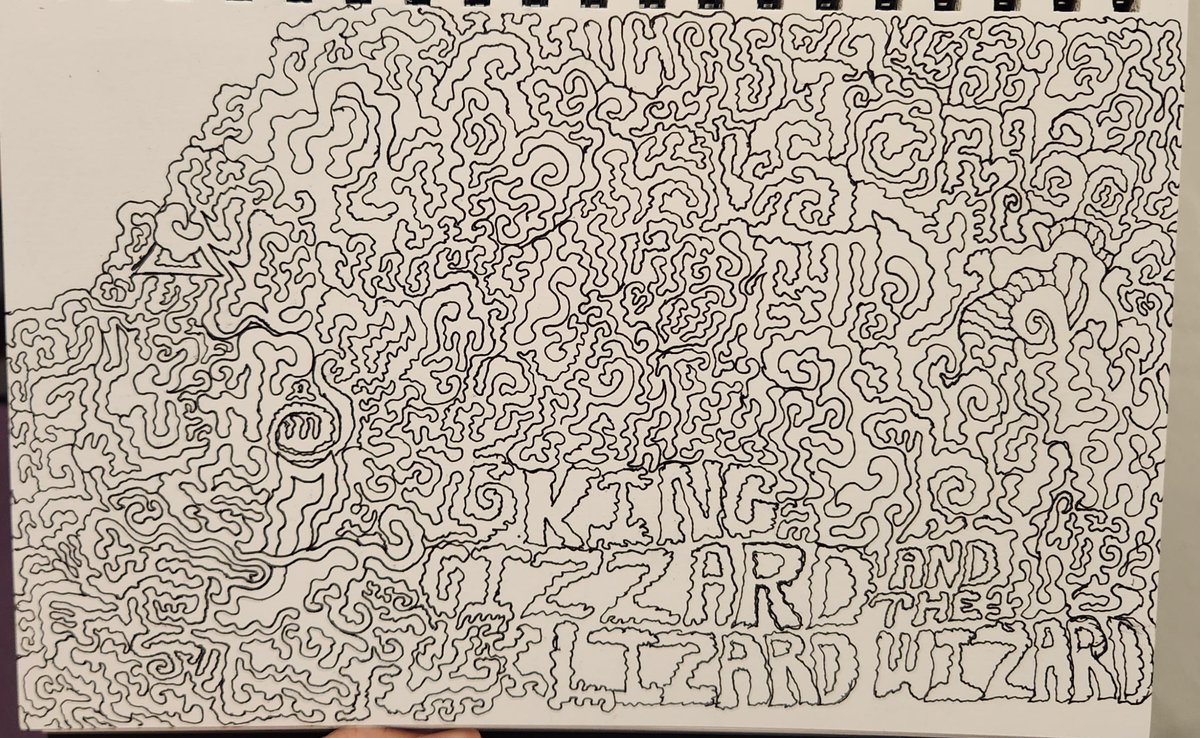 KING
GIZZARD AND
THE
LIZARD WIZARD